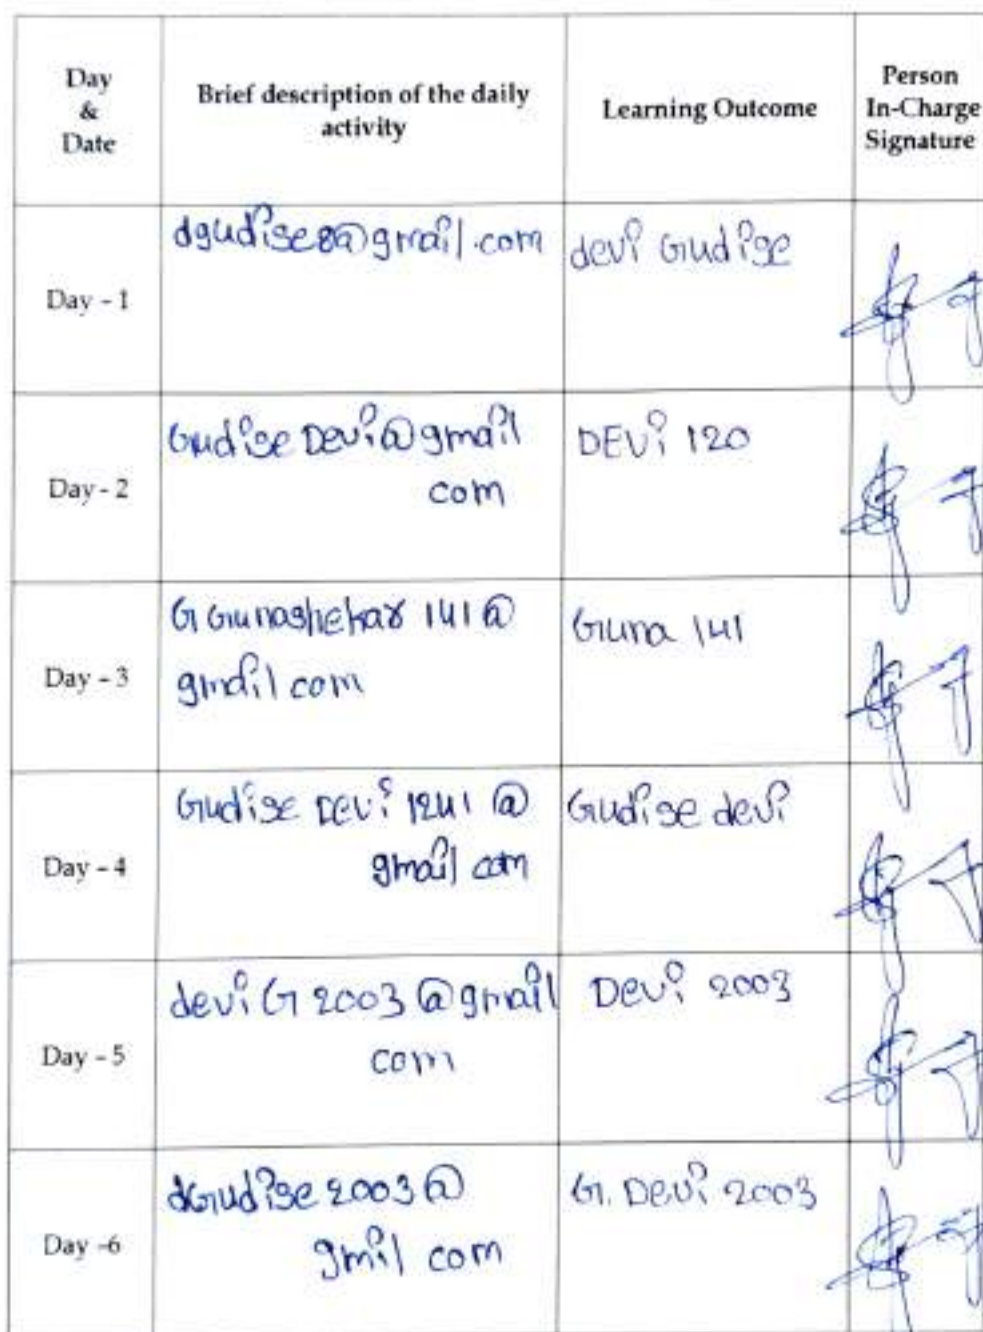 Day
&
Date
Brief description of the daily
activity
Learning Outcome
Person
In-Charge
Signature
Day - 1
dgudise8@gmail.com
devi Gudise
Day - 2
Gudise Devi@gmail
com
DEVi 120
Day - 3
G Gunashekar 141@
gmail com
Guna 141
Day - 4
Gudise Devi 1241 @
gmail com
Gudise devi
Day - 5
devi G 2003 @gmail
com
Devi 2003
Day -6
dGudise 2003@
gmil com
G. Devi 2003